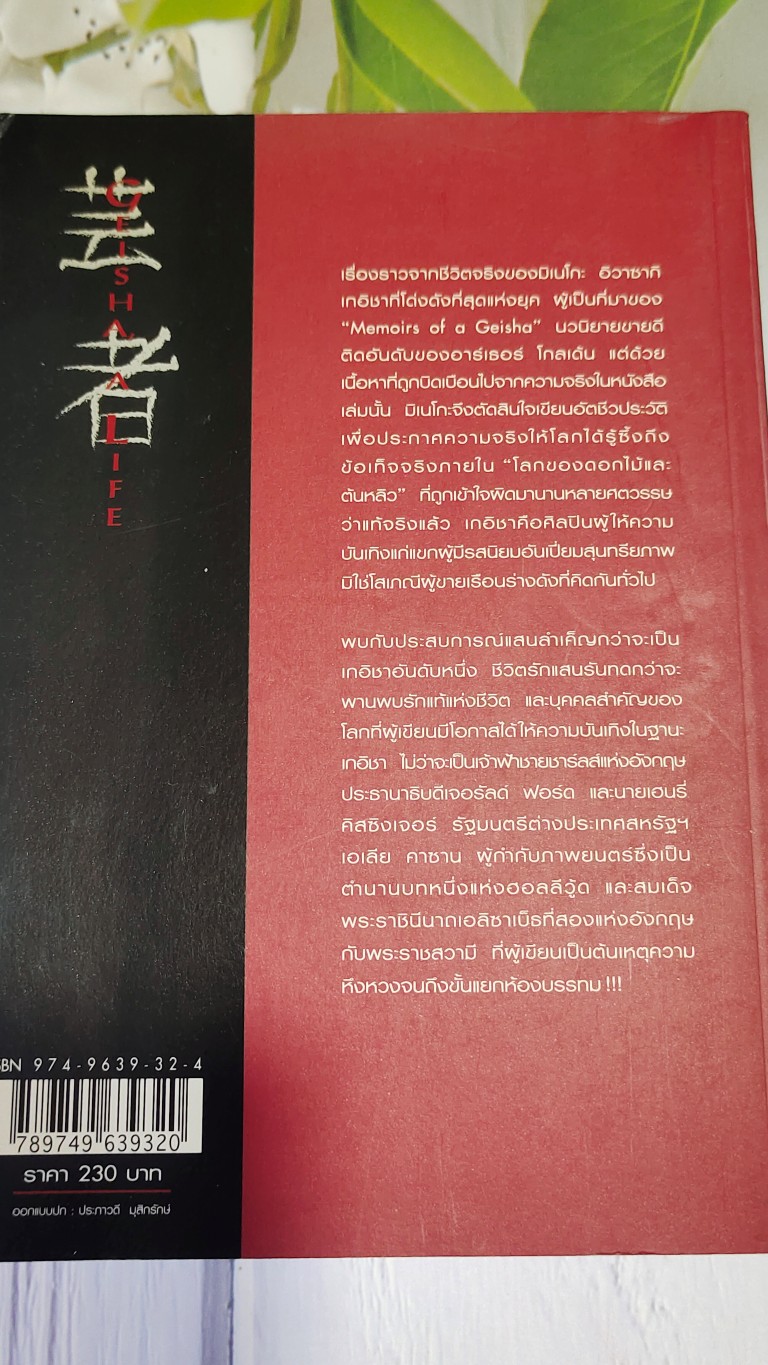 芸者
GEISHA, A LIFE
เรื่องราวจากชีวิตจริงของมิเนโกะ อิวาซากิ
เกอิชาที่โด่งดังที่สุดแห่งยุค ผู้เป็นที่มาของ
“Memoirs of a Geisha” นวนิยายขายดี
ติดอันดับของอาร์เธอร์ โกลเด้น แต่ด้วย
เนื้อหาที่ถูกบิดเบือนไปจากความจริงในหนังสือ
เล่มนั้น มิเนโกะจึงตัดสินใจเขียนอัตชีวประวัติ
เพื่อประกาศความจริงให้โลกได้รู้ซึ้งถึง
ข้อเท็จจริงภายใน “โลกของดอกไม้และ
ต้นหลิว” ที่ถูกเข้าใจผิดมานานหลายศตวรรษ
ว่าแท้จริงแล้ว เกอิชาคือศิลปินผู้ให้ความ
บันเทิงแก่แขกผู้มีรสนิยมอันเปี่ยมสุนทรียภาพ
มิใช่โสเภณีผู้ขายเรือนร่างดังที่คิดกันทั่วไป
พบกับประสบการณ์แสนลำเค็ญกว่าจะเป็น
เกอิชาอันดับหนึ่ง ชีวิตรักแสนรันทดกว่าจะ
พานพบรักแท้แห่งชีวิต และบุคคลสำคัญของ
โลกที่ผู้เขียนมีโอกาสได้ให้ความบันเทิงในฐานะ
เกอิชา ไม่ว่าจะเป็นเจ้าฟ้าชายชาร์ลส์แห่งอังกฤษ
ประธานาธิบดีเจอรัลด์ ฟอร์ด และนายเฮนรี่
คิสซิงเจอร์ รัฐมนตรีต่างประเทศสหรัฐฯ
เอเลีย คาซาน ผู้กำกับภาพยนตร์ซึ่งเป็น
ตำนานบทหนึ่งแห่งฮอลลีวู้ด และสมเด็จ
พระราชินีนาถเอลิซาเบ็ธที่สองแห่งอังกฤษ
กับพระราชสวามี ที่ผู้เขียนเป็นต้นเหตุความ
หึงหวงจนถึงขั้นแยกห้องบรรทม !!!
SBN 974-9639-32-4
789749 639320
ราคา 230 บาท
ออกแบบปก : ประภาวดี มุสิกรักษ์